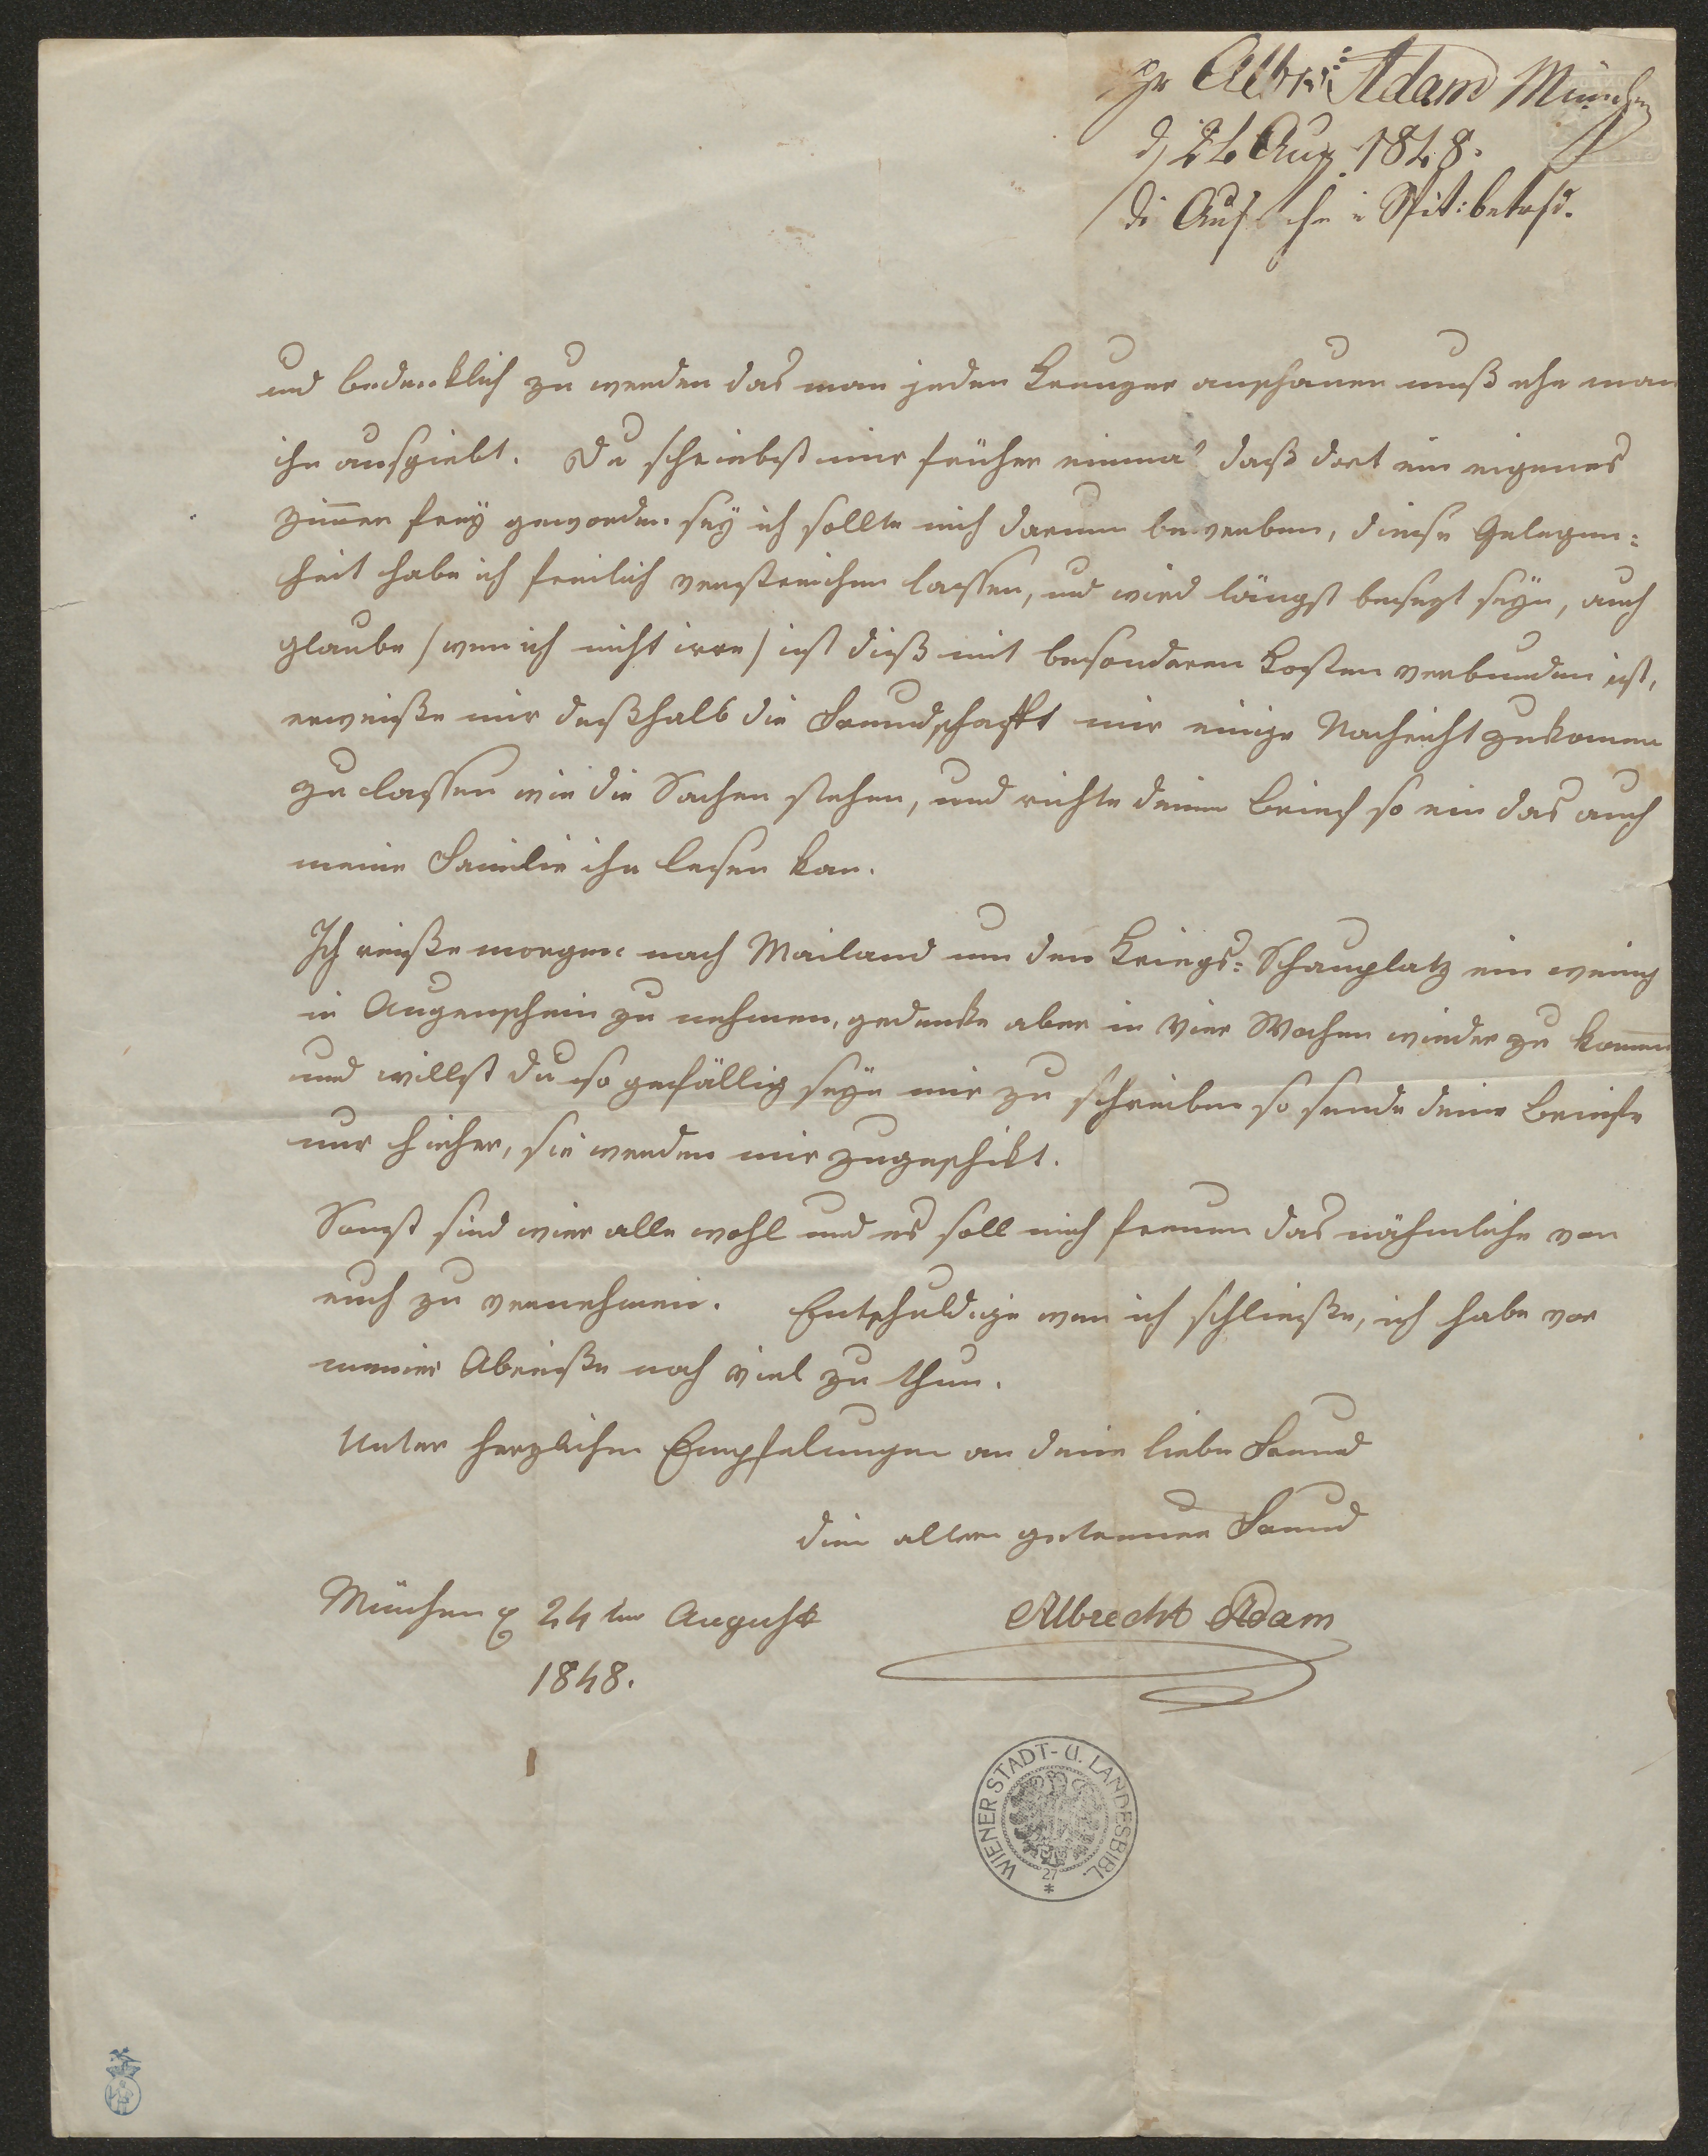 Hr Albr: Adam München
d 24 Aug. 1848.
di Aufnahme i Spit: betrfd.
und bedenklich zu werden das man jeden Kreuzer anschauen muß ehe man
ihn ausgiebt. Du schriebst mir früher einmal daß dort ein eigenes
Zimmer freÿ geworden seÿ ich sollte mich darum bewerben, diese Gelegen:
heit habe ich freilich verstreichen lassen, und wird längst besezt seÿn, auch
glaube /wen ich nicht irre/ ist dieß mit besonderen Kosten verbunden ist,
erweiße mir deßhalb die Freundschafft mir einige Nachricht zukomen
zu lassen wie die Sachen stehen, und richte deinen Brief so ein das auch
meine Familie ihn lesen kan.
Ich reiße morgen nach Mailand um den Kriegs: Schauplatz ein wenig
in Augenschein zu nehmen, gedenke aber in vier Wochen wieder zu komen
und willst du so gefällig seÿn mir zu schreiben so sende deine Briefe
nur hieher, sie werden mir zugeschikt.
Sonst sind wier alle wohl und es soll mich freuen das nähmliche von
euch zu vernehmen. Entschuldige wen ich schließe, ich habe vor
meiner Abreiße noch viel zu thun.
Unter herzlichen Empfelungen an deine liebe Freund
dein alter getreuer Freund
München 24 ten August Albrecht Adam
1848.
WIENER STADT- U. LANDESBIBL.
27